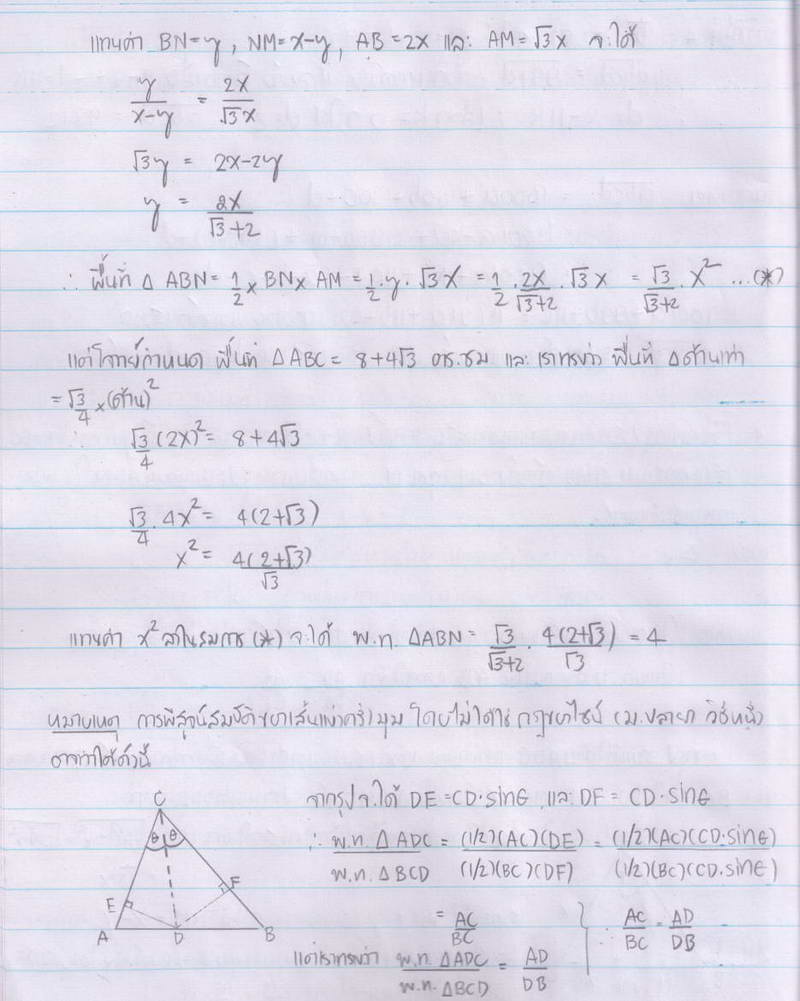 แทนค่า BN=y, NM=x-y, AB=2x และ AM=√3x จะได้
y/(x-y) = 2x/(√3x)
√3y = 2x-2y
y = 2x/(√3+2)
∴ พื้นที่ Δ ABN = 1/2 × BN × AM = 1/2 · y · √3x = 1/2 · 2x/(√3+2) · √3x = √3/(√3+2) · x² ...(*)
แต่โจทย์กำหนด พื้นที่ ΔABC = 8+4√3 ตร.ซม และเราทราบว่า พื้นที่ Δด้านเท่า
= √3/4 × (ด้าน)²
∴ √3/4 (2x)² = 8+4√3
√3/4 · 4x² = 4(2+√3)
x² = 4(2+√3)/√3
แทนค่า x² ลงในสมการ (*) จะได้ พ.ท. ΔABN = √3/(√3+2) · 4(2+√3)/√3 = 4
หมายเหตุ การพิสูจน์สมบัติของเส้นแบ่งครึ่งมุม โดยไม่ได้ใช้ กฎของไซน์ (ม.ปลาย) วิธีหนึ่ง
อาจทำได้ดังนี้
จากรูป จะได้ DE = CD·sinθ และ DF = CD·sinθ
∴ พ.ท. ΔADC / พ.ท. ΔBCD = (1/2)(AC)(DE) / (1/2)(BC)(DF) = (1/2)(AC)(CD·sinθ) / (1/2)(BC)(CD·sinθ)
= AC/BC
แต่เราทราบว่า พ.ท. ΔADC / พ.ท. ΔBCD = AD/DB
} ∴ AC/BC = AD/DB
C
θ θ
E F
A D B